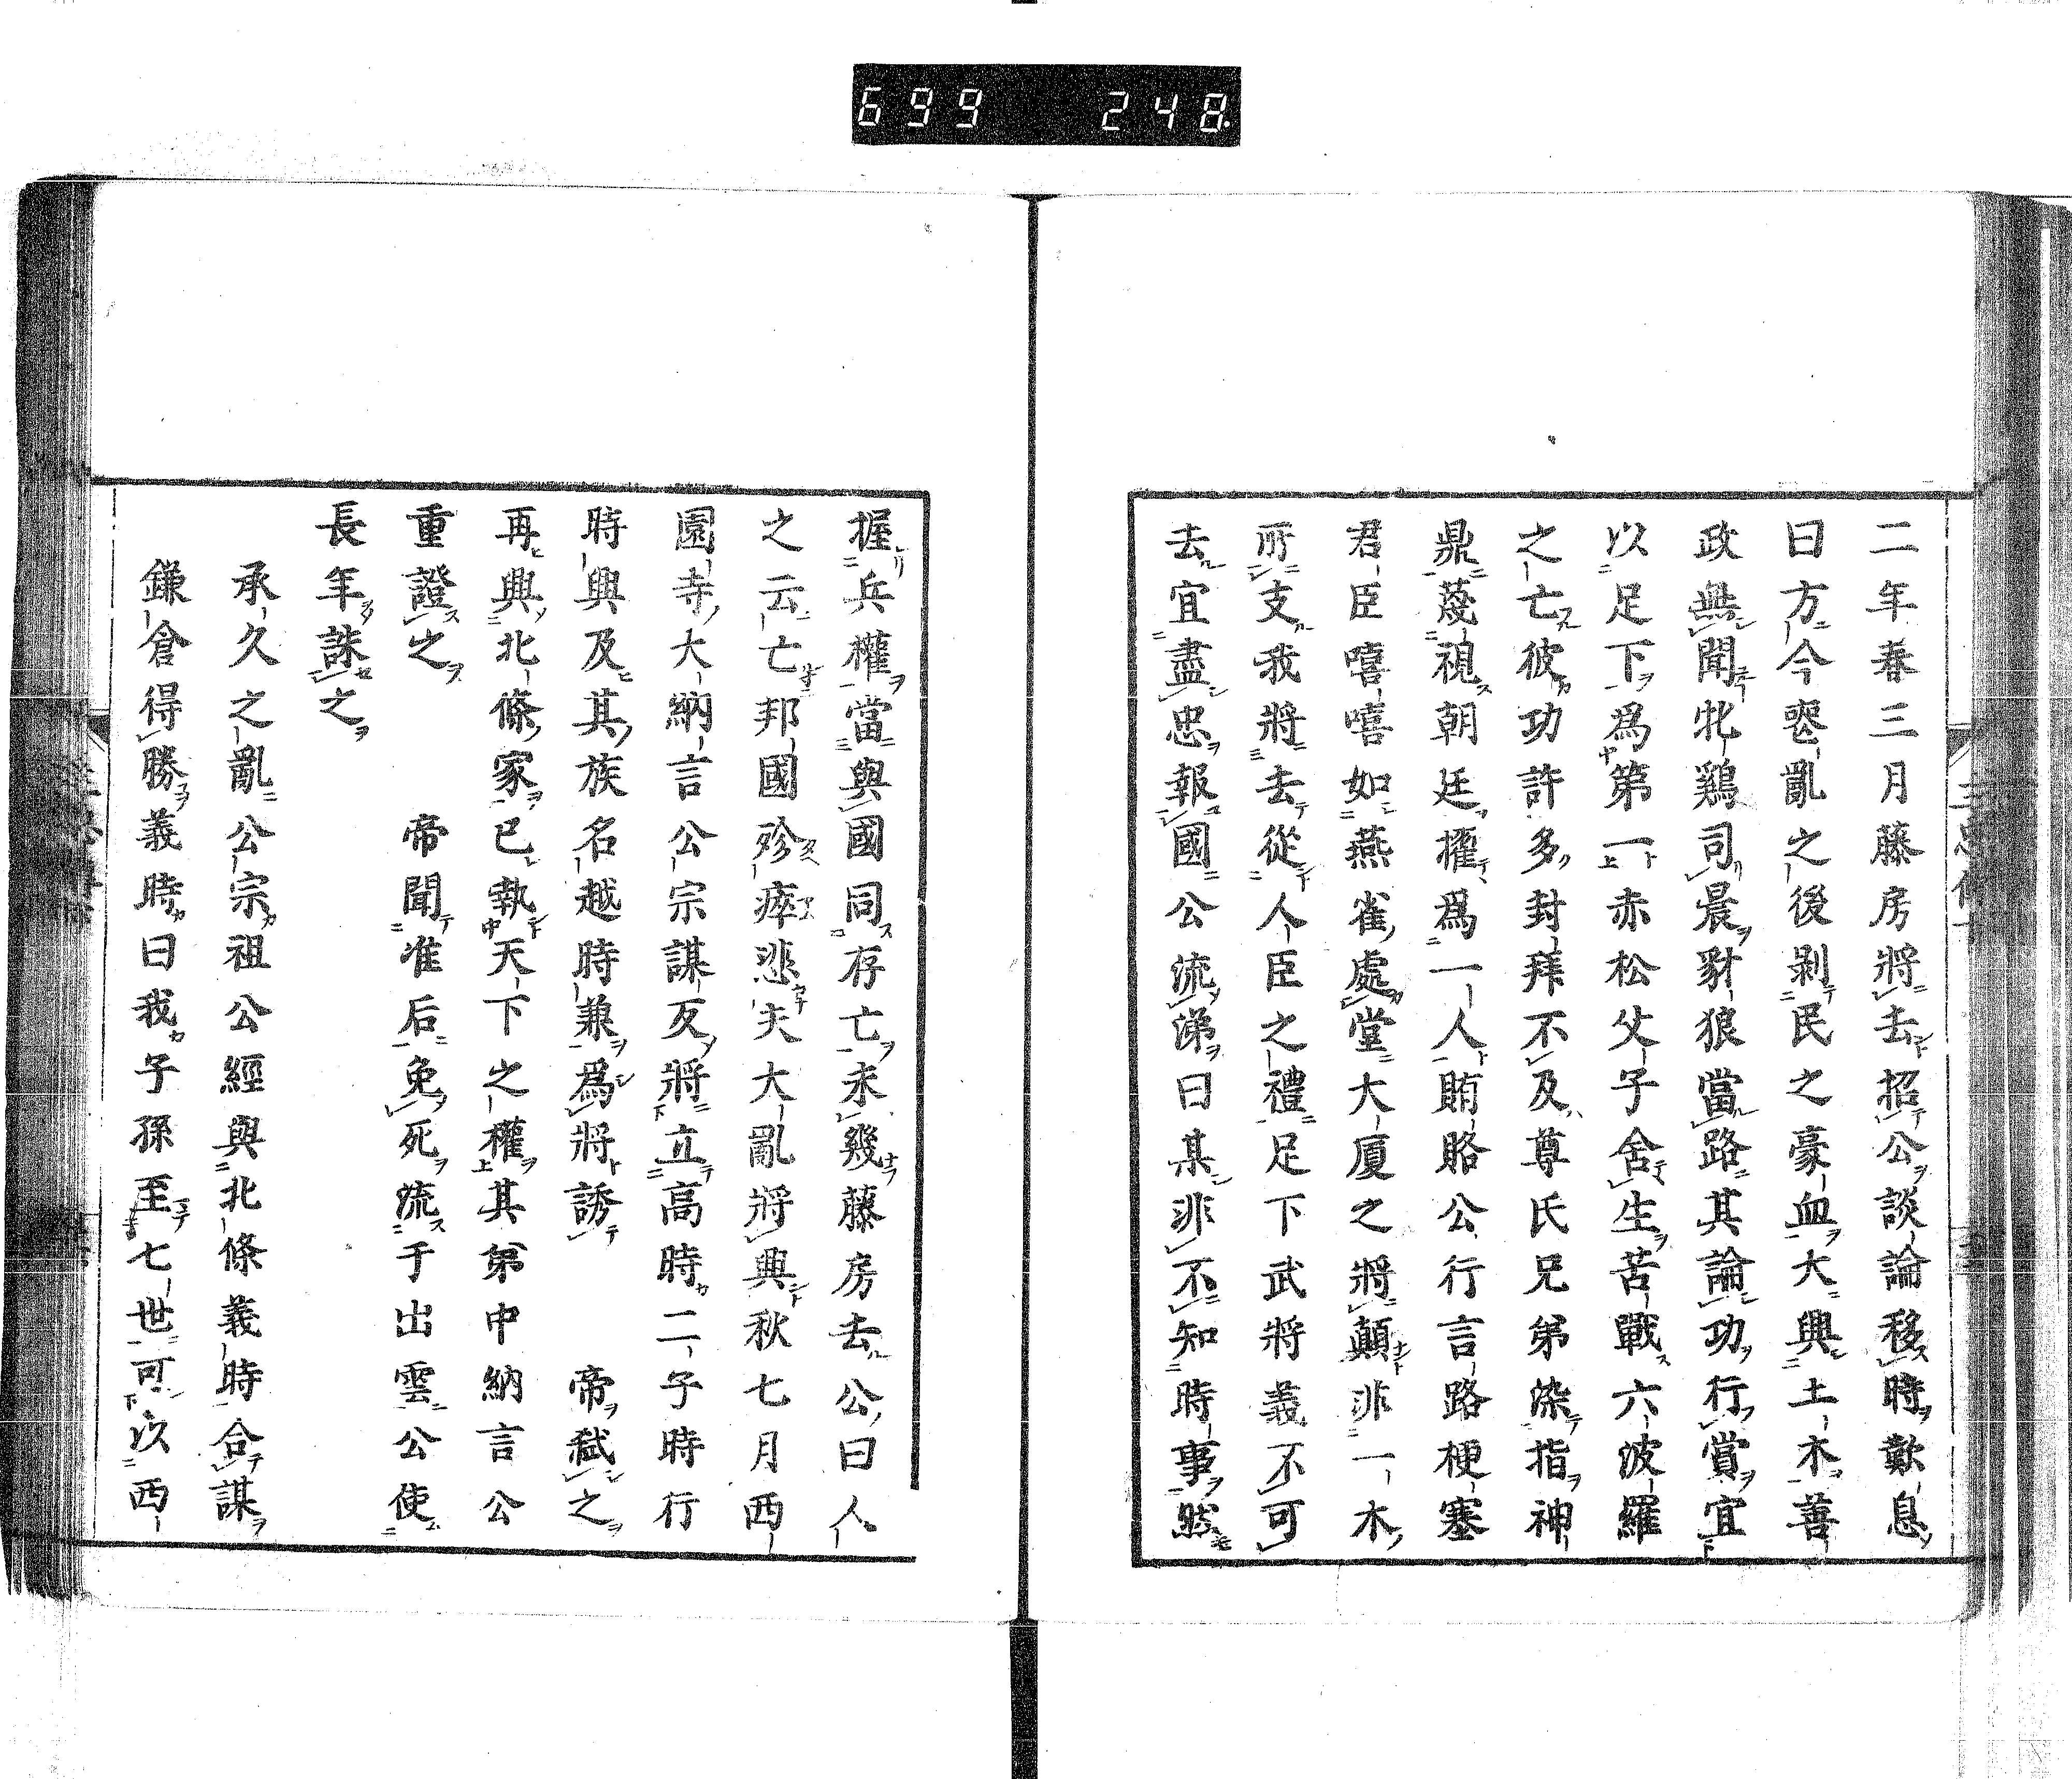 699 248
二年春三月藤房將去招公談論移時歎息
曰方今喪亂之後剝民之豪血大興土木善
政無聞牝鷄司晨豺狼當路其論功行賞宜
以足下爲第一赤松父子舍生苦戰六波羅
之亡彼功許多封拜不及尊氏兄弟染指神
鼎蔑視朝廷擢爲一人賄賂公行言路梗塞
君臣嘻嘻如燕雀處堂大厦之將顛非一木
所支我將去從人臣之禮足下武將義不可
去宜盡忠報國公流涕曰某非不知時事然
握兵權當與國同存亡未幾藤房去公曰人
之云亡邦國殄瘁悲夫大亂將興秋七月西
園寺大納言公宗謀反將立高時二子時行
時興及其族名越時兼爲將誘帝弑之
再興北條家已執天下之權其弟中納言公
重證之帝聞准后免死流于出雲公使
長年誅之
承久之亂公宗祖公經與北條義時合謀
鎌倉得勝義時曰我子孫至七世可以西